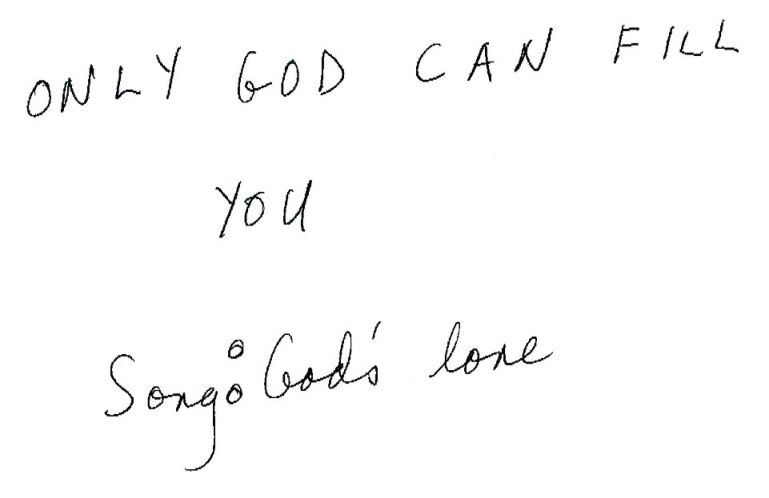 ONLY GOD CAN FILL
YOU
Song: God's love